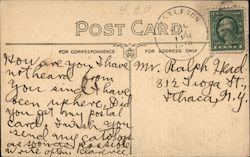 POST CARD
FOR CORRESPONDENCE
FOR ADDRESS ONLY
How are you I have
not heard from
you since I have
been up here. Did
you get my postal
card. I wish you
send my catalogs
as soon as possible
Write often. Clarence
Mr. Ralph Head
312 Tioga St.,
Ithaca N.Y.